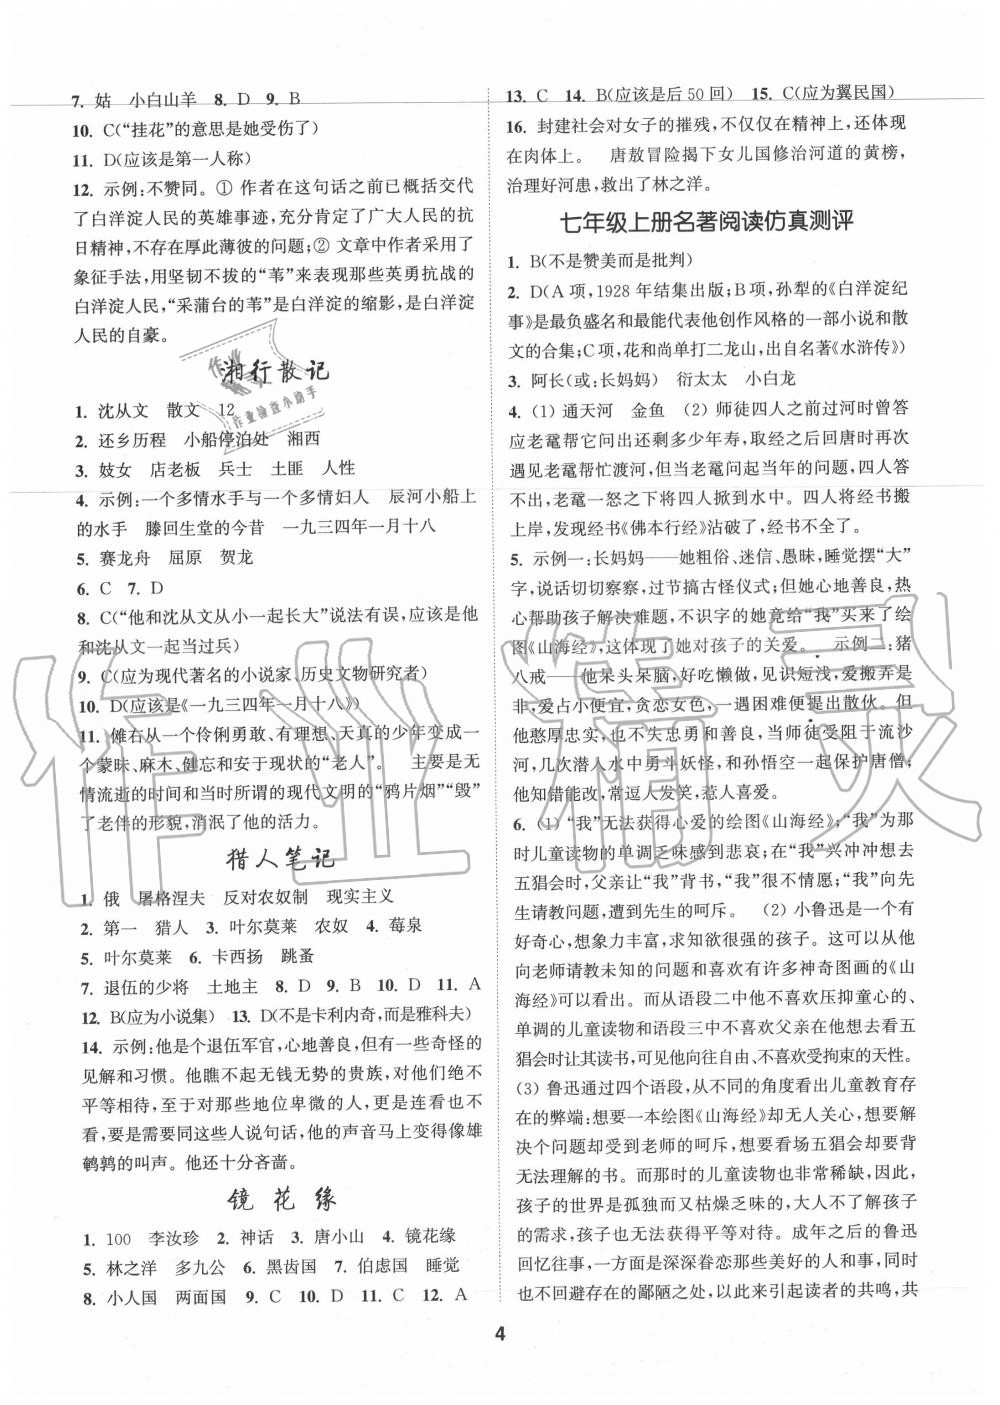 7. 姑　小白山羊　8. D　9. B
10. C(“挂花”的意思是她受伤了)
11. D(应该是第一人称)
12. 示例:不赞同。① 作者在这句话之前已概括交代
了白洋淀人民的英雄事迹,充分肯定了广大人民的抗
日精神,不存在厚此薄彼的问题;② 文章中作者采用了
象征手法,用坚韧不拔的“苇”来表现那些英勇抗战的
白洋淀人民,“采蒲台的苇”是白洋淀的缩影,是白洋淀
人民的自豪。
湘行散记
1. 沈从文　散文　12
2. 还乡历程　小船停泊处　湘西
3. 妓女　店老板　兵士　土匪　人性
4. 示例:一个多情水手与一个多情妇人　辰河小船上
的水手　滕回生堂的今昔　一九三四年一月十八
5. 赛龙舟　屈原　贺龙
6. C　7. D
8. C(“他和沈从文从小一起长大”说法有误,应该是他
和沈从文一起当过兵)
9. C(应为现代著名的小说家、历史文物研究者)
10. D(应该是《一九三四年一月十八》)
11. 傩右从一个伶俐勇敢、有理想、天真的少年变成一
个蒙昧、麻木、健忘和安于现状的“老人”。　主要是无
情流逝的时间和当时所谓的现代文明的“鸦片烟”“毁”
了老伴的形貌,消泯了他的活力。
猎人笔记
1. 俄　屠格涅夫　反对农奴制　现实主义
2. 第一　猎人　3. 叶尔莫莱　农奴　4. 莓泉
5. 叶尔莫莱　6. 卡西扬　跳蚤
7. 退伍的少将　土地主　8. D　9. B　10. D　11. A
12. B(应为小说集)　13. D(不是卡利内奇,而是雅科夫)
14. 示例:他是个退伍军官,心地善良,但有一些奇怪的
见解和习惯。他瞧不起无钱无势的贵族,对他们绝不
平等相待,至于对那些地位卑微的人,更是连看也不
看,要是需要同这些人说句话,他的声音马上变得像雄
鹌鹑的叫声。他还十分吝啬。
镜花缘
1. 100　李汝珍　2. 神话　3. 唐小山　4. 镜花缘
5. 林之洋　多九公　6. 黑齿国　7. 伯虑国　睡觉
8. 小人国　两面国　9. C　10. D　11. C　12. A
13. C　14. B(应该是后 50 回)　15. C(应为翼民国)
16. 封建社会对女子的摧残,不仅仅在精神上,还体现
在肉体上。　唐敖冒险揭下女儿国修治河道的黄榜,
治理好河患,救出了林之洋。
七年级上册名著阅读仿真测评
1. B(不是赞美而是批判)
2. D(A 项,1928 年结集出版;B 项,孙犁的《白洋淀纪
事》是最负盛名和最能代表他创作风格的一部小说和散
文的合集;C 项,花和尚单打二龙山,出自名著《水浒传》)
3. 阿长(或:长妈妈)　衍太太　小白龙
4. (1) 通天河　金鱼　(2) 师徒四人之前过河时曾答
应老鼋帮它问出还剩多少年寿,取经之后回唐时再次
遇见老鼋帮忙渡河,但当老鼋问起当年的问题,四人答
不出,老鼋一怒之下将四人掀到水中。四人将经书搬
上岸,发现经书《佛本行经》沾破了,经书不全了。
5. 示例一:长妈妈——她粗俗、迷信、愚昧,睡觉摆“大”
字,说话切切察察,过节搞古怪仪式;但她心地善良,热
心帮助孩子解决难题,不识字的她竟给“我”买来了绘
图《山海经》,这体现了她对孩子的关爱。　示例二:猪
八戒——他呆头呆脑,好吃懒做,见识短浅,爱搬弄是
非,爱占小便宜,贪恋女色,一遇困难便提出散伙。但
他憨厚忠实,也不失忠勇和善良,当师徒受阻于流沙
河,几次潜入水中勇斗妖怪,和孙悟空一起保护唐僧;
他知错能改,常逗人发笑,惹人喜爱。
6. (1) “我”无法获得心爱的绘图《山海经》;“我”为那
时儿童读物的单调乏味感到悲哀;在“我”兴冲冲想去
五猖会时,父亲让“我”背书,“我”感到扫兴;“我”向先
生请教问题,遭到先生的呵斥。　(2) 小鲁迅是一个有
好奇心,想象力丰富,求知欲很强的孩子。这可以从他
向老师请教未知的问题和喜欢有许多神奇图画的《山
海经》可以看出。而从语段二中他不喜欢压抑童心的、
单调的儿童读物和语段三中不喜欢父亲在他去看五
猖会时让其读书,可见他向往自由、不喜欢受拘束的天性。
(3) 鲁迅通过四个语段,从不同的角度看出儿童教育存
在的弊端:想要一本绘图《山海经》却无人关心,想要解
决个问题却受到老师的呵斥,想要看场五猖会却要背
无法理解的书。而那时的儿童读物也非常稀缺,因此,
孩子的世界是孤独而又枯燥乏味的,大人不了解孩子
的需求,孩子也无法获得平等对待。成年之后的鲁迅
回忆往事,一方面是深深眷恋那无忧的童年,一方面是
批判存在的鄙陋之处,以此来引起读者的共鸣,共
4
作业精灵
作业
作业检查小助手